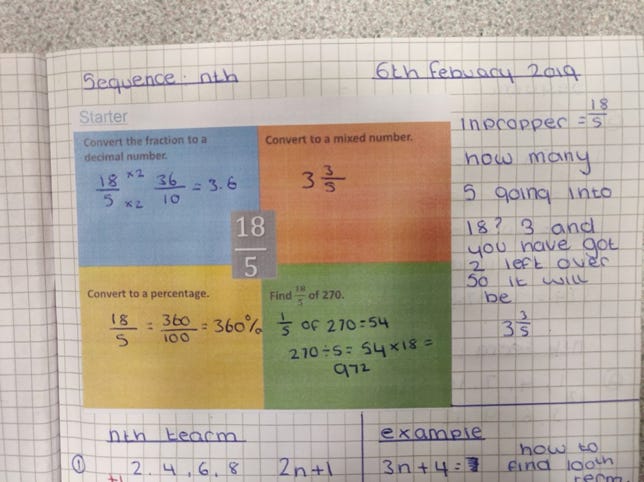 Sequence: nth
6th febuary 2019
Starter
Convert the fraction to a
decimal number.
18/5 ×2 ×2 36/10 = 3.6
Convert to a mixed number.
3 3/5
18/5
Convert to a percentage.
18/5 = 360/100 = 360%
Find 18/5 of 270.
1/5 of 270=54
270÷5= 54×18=
972
inpropper = 18/5
how many
5 going into
18? 3 and
you have got
2 left over
So it will
be
3 3/5
nth tearm
① 2, 4, 6, 8 2n+1
+1
example
3n+4=7
how to
find 100th